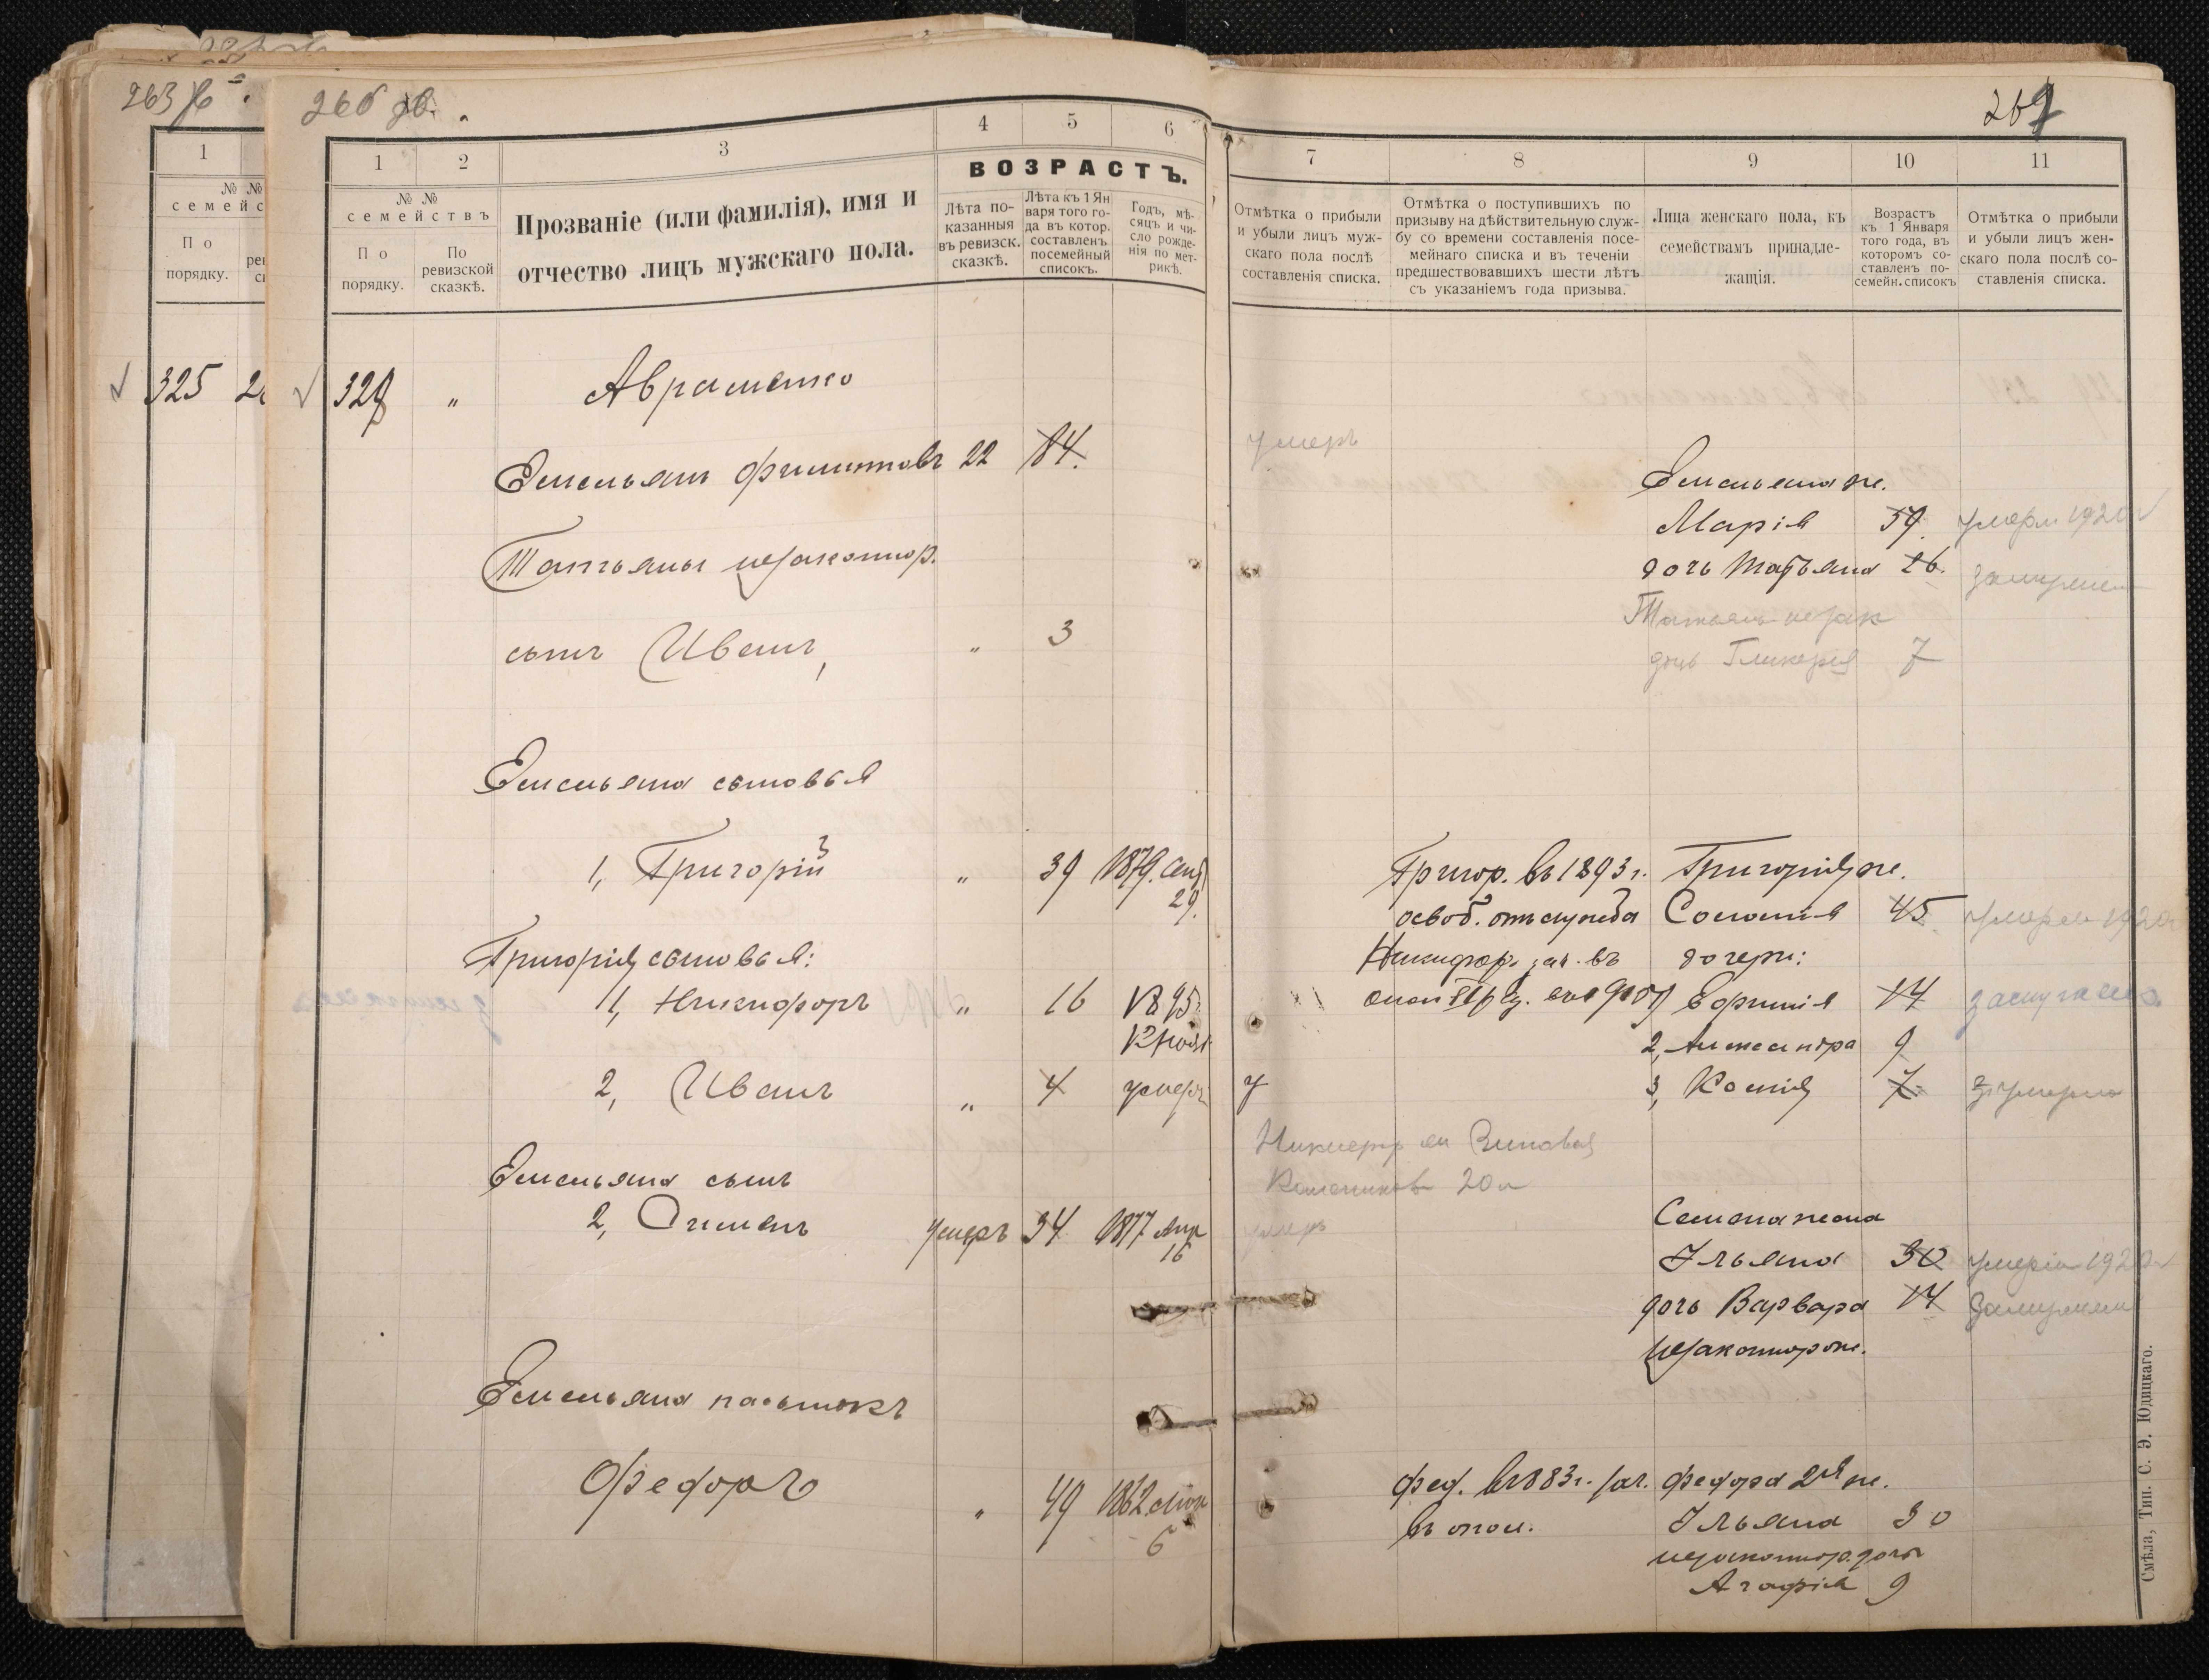 263
266 об.
267
1
№ №
По
порядку.
325
1
2
3
4
5
6
№ №
семействъ
По
порядку.
По
ревизской
сказкѣ.
Прозваніе (или фамилія), имя и
отчество лицъ мужскаго пола.
ВОЗРАСТЪ.
Лѣта по-
казанныя
въ ревизск.
сказкѣ.
Лѣта къ 1 Ян
варя того го-
да въ котор.
составленъ
посемейный
списокъ.
Годъ, мѣ-
сяцъ и чи-
сло рожде-
нія по мет-
рикѣ.
Авраменко
Емельянъ Филиповъ 22 84.
Татьяны незаконнор.
сынъ Иванъ, " 3
Емельяна сыновья
1, Григорій " 39 1879. Сент
29.
Григорія сыновья:
1, Никифоръ " 16 1895.
2, Иванъ " 4 умеръ
Емельяна сынъ
2, умеръ 34 1877 Апр
16
Емельяна пасынокъ
Федоръ " 49 1862
6
7
8
9
10
11
Отмѣтка о прибыли
и убыли лицъ муж-
скаго пола послѣ
составленія списка.
Отмѣтка о поступившихъ по
призыву на дѣйствительную служ-
бу со времени составленія посе-
мейнаго списка и въ теченіи
предшествовавшихъ шести лѣтъ
съ указаніемъ года призыва.
Лица женскаго пола, къ
семействамъ принадле-
жащія.
Возрастъ
къ 1 Января
того года, въ
котормъ со-
ставленъ по-
семейн. списокъ
Отмѣтка о прибыли
и убыли лицъ жен-
скаго пола послѣ со-
ставленія списка.
умеръ
Емельяна ж.
Марія 59. умерл 1920
дочь Татьяна 26. замужем
Татьяны незак
дочь Гликерія 7
Григор. въ 1893 г. Григорія ж.
освоб. отъ службы Соломія 45 умерла 1920
Никифоръ зач. въ дочери:
Ефимія 14 замужем
2, Александра 9
у 3, Ксенія 7 умерла
20
умеръ Семена жена
Ульяна 30 умерла 1920
дочь Варвара 14 замужем
незаконнорож.
Фед. въ 1883 г. зач. Федора 2я ж.
въ опол. Ульяна 30
незаконнор. дочь
Агафія 9
Смѣла, Тип. С. Э. Юдицкаго.